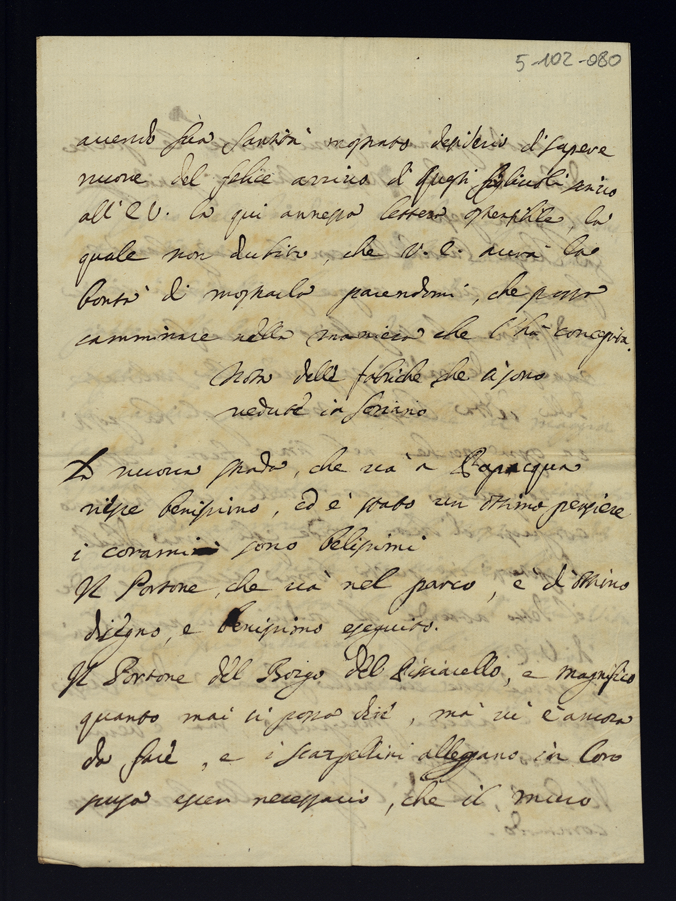 5-102-080
avendo Sua Santità mostrato desiderio di sapere
nuove del felice arrivo di questi figlivoli unico
all' E V. la qui annessa lettera ostensibile, la
quale non dubito, che V. E. averà la
bontà di mostrarla parendomi, che possa
camminare nella maniera che l'hà concepita.
Nota delle fabriche che si sono
vedute in Soriano
La nuova strada, che và a Papacqua
riesce benissimo, ed è stato un ottimo pensiere
i coramini sono belissimi
Il Portone, che và nel parco, è d'ottimo
disegno, e benissimo eseguito.
Il Portone del Borgo del Pisciarello, e magnifico
quanto mai si possa dire, mà vi è ancora
da fare, e i scarpellini allegano in loro
scusa esser necessario, che il muro